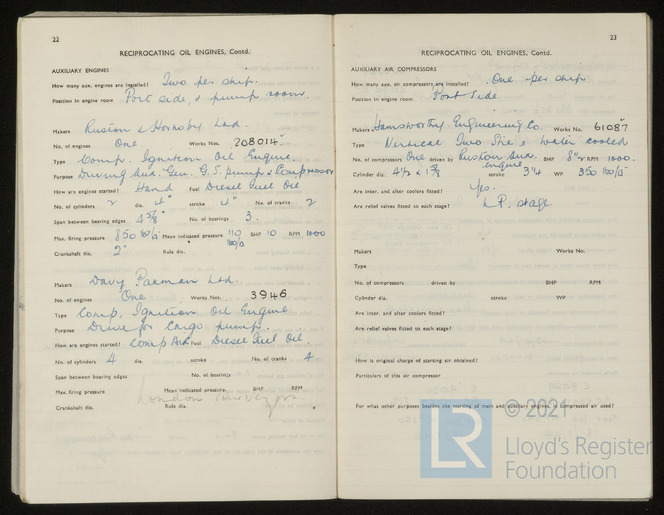 22
RECIPROCATING OIL ENGINES, Contd.
AUXILIARY ENGINES
How many aux. engines are installed? Two per ship.
Position in engine room Port side, & pump room
Makers Ruston & Hornsby Ltd.
No. of engines One Works Nos. 208014.
Type Comp. Ignition Oil Engine.
Purpose Driving Aux. Gen. G.S. pump & Compressor
How are engines started? Hand Fuel Diesel Fuel Oil
No. of cylinders 2 dia. 4" stroke 4" No. of cranks 2
Span between bearing edges 4 5/8" No. of bearings 3.
Max. firing pressure 850 lb/□" Mean indicated pressure 110 lb/□ BHP 10 RPM 1000
Crankshaft dia. 2" Rule dia.
Makers Davy Paxman Ltd.
No. of engines One Works Nos. 3946
Type Comp. Ignition Oil Engine
Purpose Drive for Cargo pump.
How are engines started? Comp Air Fuel Diesel Fuel Oil.
No. of cylinders 4 dia. stroke No. of cranks 4
Span between bearing edges No. of bearings
Max. firing pressure Mean indicated pressure BHP RPM
London Surveyors
Crankshaft dia. Rule dia.
23
RECIPROCATING OIL ENGINES, Contd.
AUXILIARY AIR COMPRESSORS
How many aux. air compressors are installed? One per ship
Position in engine room Port Side
Makers Hamsworthy Engineering Co. Works No. 61087
Type Vertical Two Stage Water cooled
No. of compressors One driven by Ruston Aux. engine BHP 8"2 RPM 1000.
Cylinder dia. stroke 3 1/4 WP 350 lb/□"
Are inter. and after coolers fitted? Yes.
Are relief valves fitted to each stage? L.P. stage.
Makers Works No.
Type
No. of compressors driven by BHP RPM
Cylinder dia. stroke WP
Are inter. and after coolers fitted?
Are relief valves fitted to each stage?
How is original charge of starting air obtained?
Particulars of this air compressor
For what other purposes besides the starting of main and auxiliary engines, is compressed air used?
© 2021
LR
Lloyd's Register
Foundation